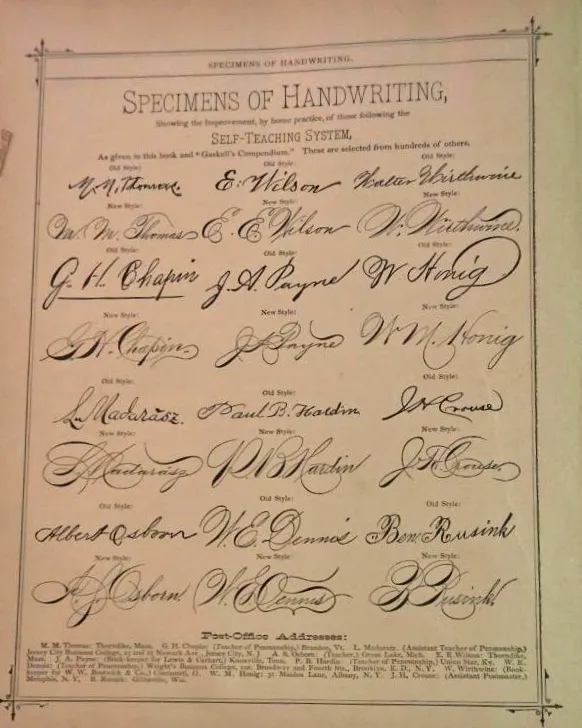 SPECIMENS OF HANDWRITING.
SPECIMENS OF HANDWRITING,
Showing the Improvement, by home practice, of those following the
SELF-TEACHING SYSTEM,
As given in this book and "Gaskell's Compendium." These are selected from hundreds of others.
Old Style: Old Style: Old Style:
M. M. Thomas. E. Wilson Walter Wirthwine
New Style: New Style: New Style:
M. M. Thomas E. E. Wilson W. Wirthwine.
Old Style: Old Style: Old Style:
G. H. Chapin J. A. Payne W Honig
New Style: New Style: New Style:
G. H. Chapin. J. A. Payne W. M. Honig
Old Style: Old Style: Old Style:
L. Madarasz. Paul B. Hardin J H Crouse
New Style: New Style: New Style:
L. Madarasz P. B. Hardin J. H. Crouse.
Old Style: Old Style: Old Style:
Albert Osborn W. E. Dennis Ben. Rusink
New Style: New Style: New Style:
A. S. Osborn. W. E. Dennis B Rusink.
Post-Office Addresses:
M. M. Thomas: Thorndike, Mass. G. H. Chapin: (Teacher of Penmanship,) Brandon, Vt. L. Madarasz. (Assistant Teacher of Penmanship,)
Jersey City Business College, 23 and 25 Newark Ave., Jersey City, N. J. A. S. Osborn: (Teacher,) Grass Lake, Mich. E. E. Wilson: Thorndike,
Mass. J. A. Payne: (Book-keeper for Lewis & Carhart,) Knoxville, Tenn. P. B. Hardin: (Teacher of Penmanship,) Union Star, Ky. W. E.
Dennis: (Teacher of Penmanship,) Wright's Business College, cor. Broadway and Fourth Sts., Brooklyn, E. D., N. Y. W. Wirthwine: (Book-
keeper for W. W. & Co.,) Cincinnati, O. W. M. Honig: 31 Maiden Lane, Albany, N. Y. J. H. Crouse: (Assistant Postmaster,)
Memphis, N. Y. B. Rusink: Gibbsville, Wis.